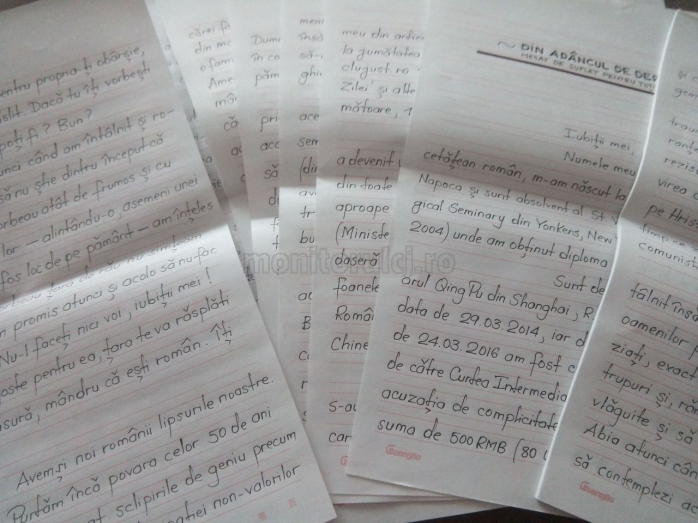 entru propria-ți obârșie,
Dacă tu îți vorbești
poți fi? Bun?
unci când am întâlnit și ro-
să nu știe dintru început că
orbeau atât de frumos și cu
lor – alintându-o, asemeni unei
fos loc de pe pământ – am înțeles
promis atunci și acolo să nu fac
Nu-l faceți nici voi, iubiții mei!
oaste pentru ea, țara te va răsplăti
asură, mândru că ești român. Îți
Avem și noi românii lipsurile noastre.
Purtăm încă povara celor 50 de ani
sclipirile de geniu precum
non-valorilor
cărei fo
din mo
o fami
Ame
mâi
că
a
Dum
în co
păm
pri
acc
să
meni
însă
să-i
ghi
ace
sem
(di
avi
tr
bu
meu din ardea
la jumătatea
clugust.ro
Zilei și alte
mătoare, 1
a devenit
din toate
aproape
(Minist
daseră
foanele
Români
Chine
s-au
car
DIN ADÂNCUL DE DE
MESAJ DE SUFLET PENTRU TOȚI
Iubiții mei,
Numele meu
cetățean român, m-am născut la
Napoca și sunt absolvent al St V
gical Seminary din Yonkers, New
2004) unde am obținut diploma
Sunt de
arul Qing Pu din Shanghai, R
data de 29.03.2014, iar d
de 24.03.2016 am fost c
de către Curtea Intermedia
acuzația de complicitate
suma de 500 RMB (80
Guangbo
pe Hris
Comunist
tâlnit însă
oamenilor
ziați, exact
trupuri și, re
vlăguite și să
Abia atunci cân
să contemplezi a
Guangbo
monitorulcj.ro